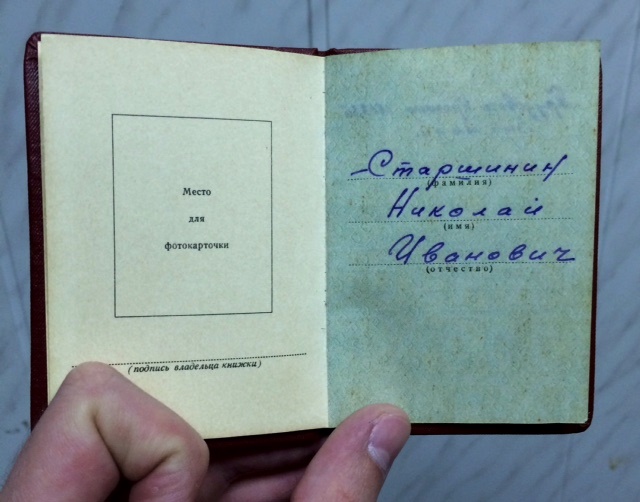 Место
для
фотокарточки
(подпись владельца книжки)
Старшинин
(фамилия)
Николай
(имя)
Иванович
(отчество)